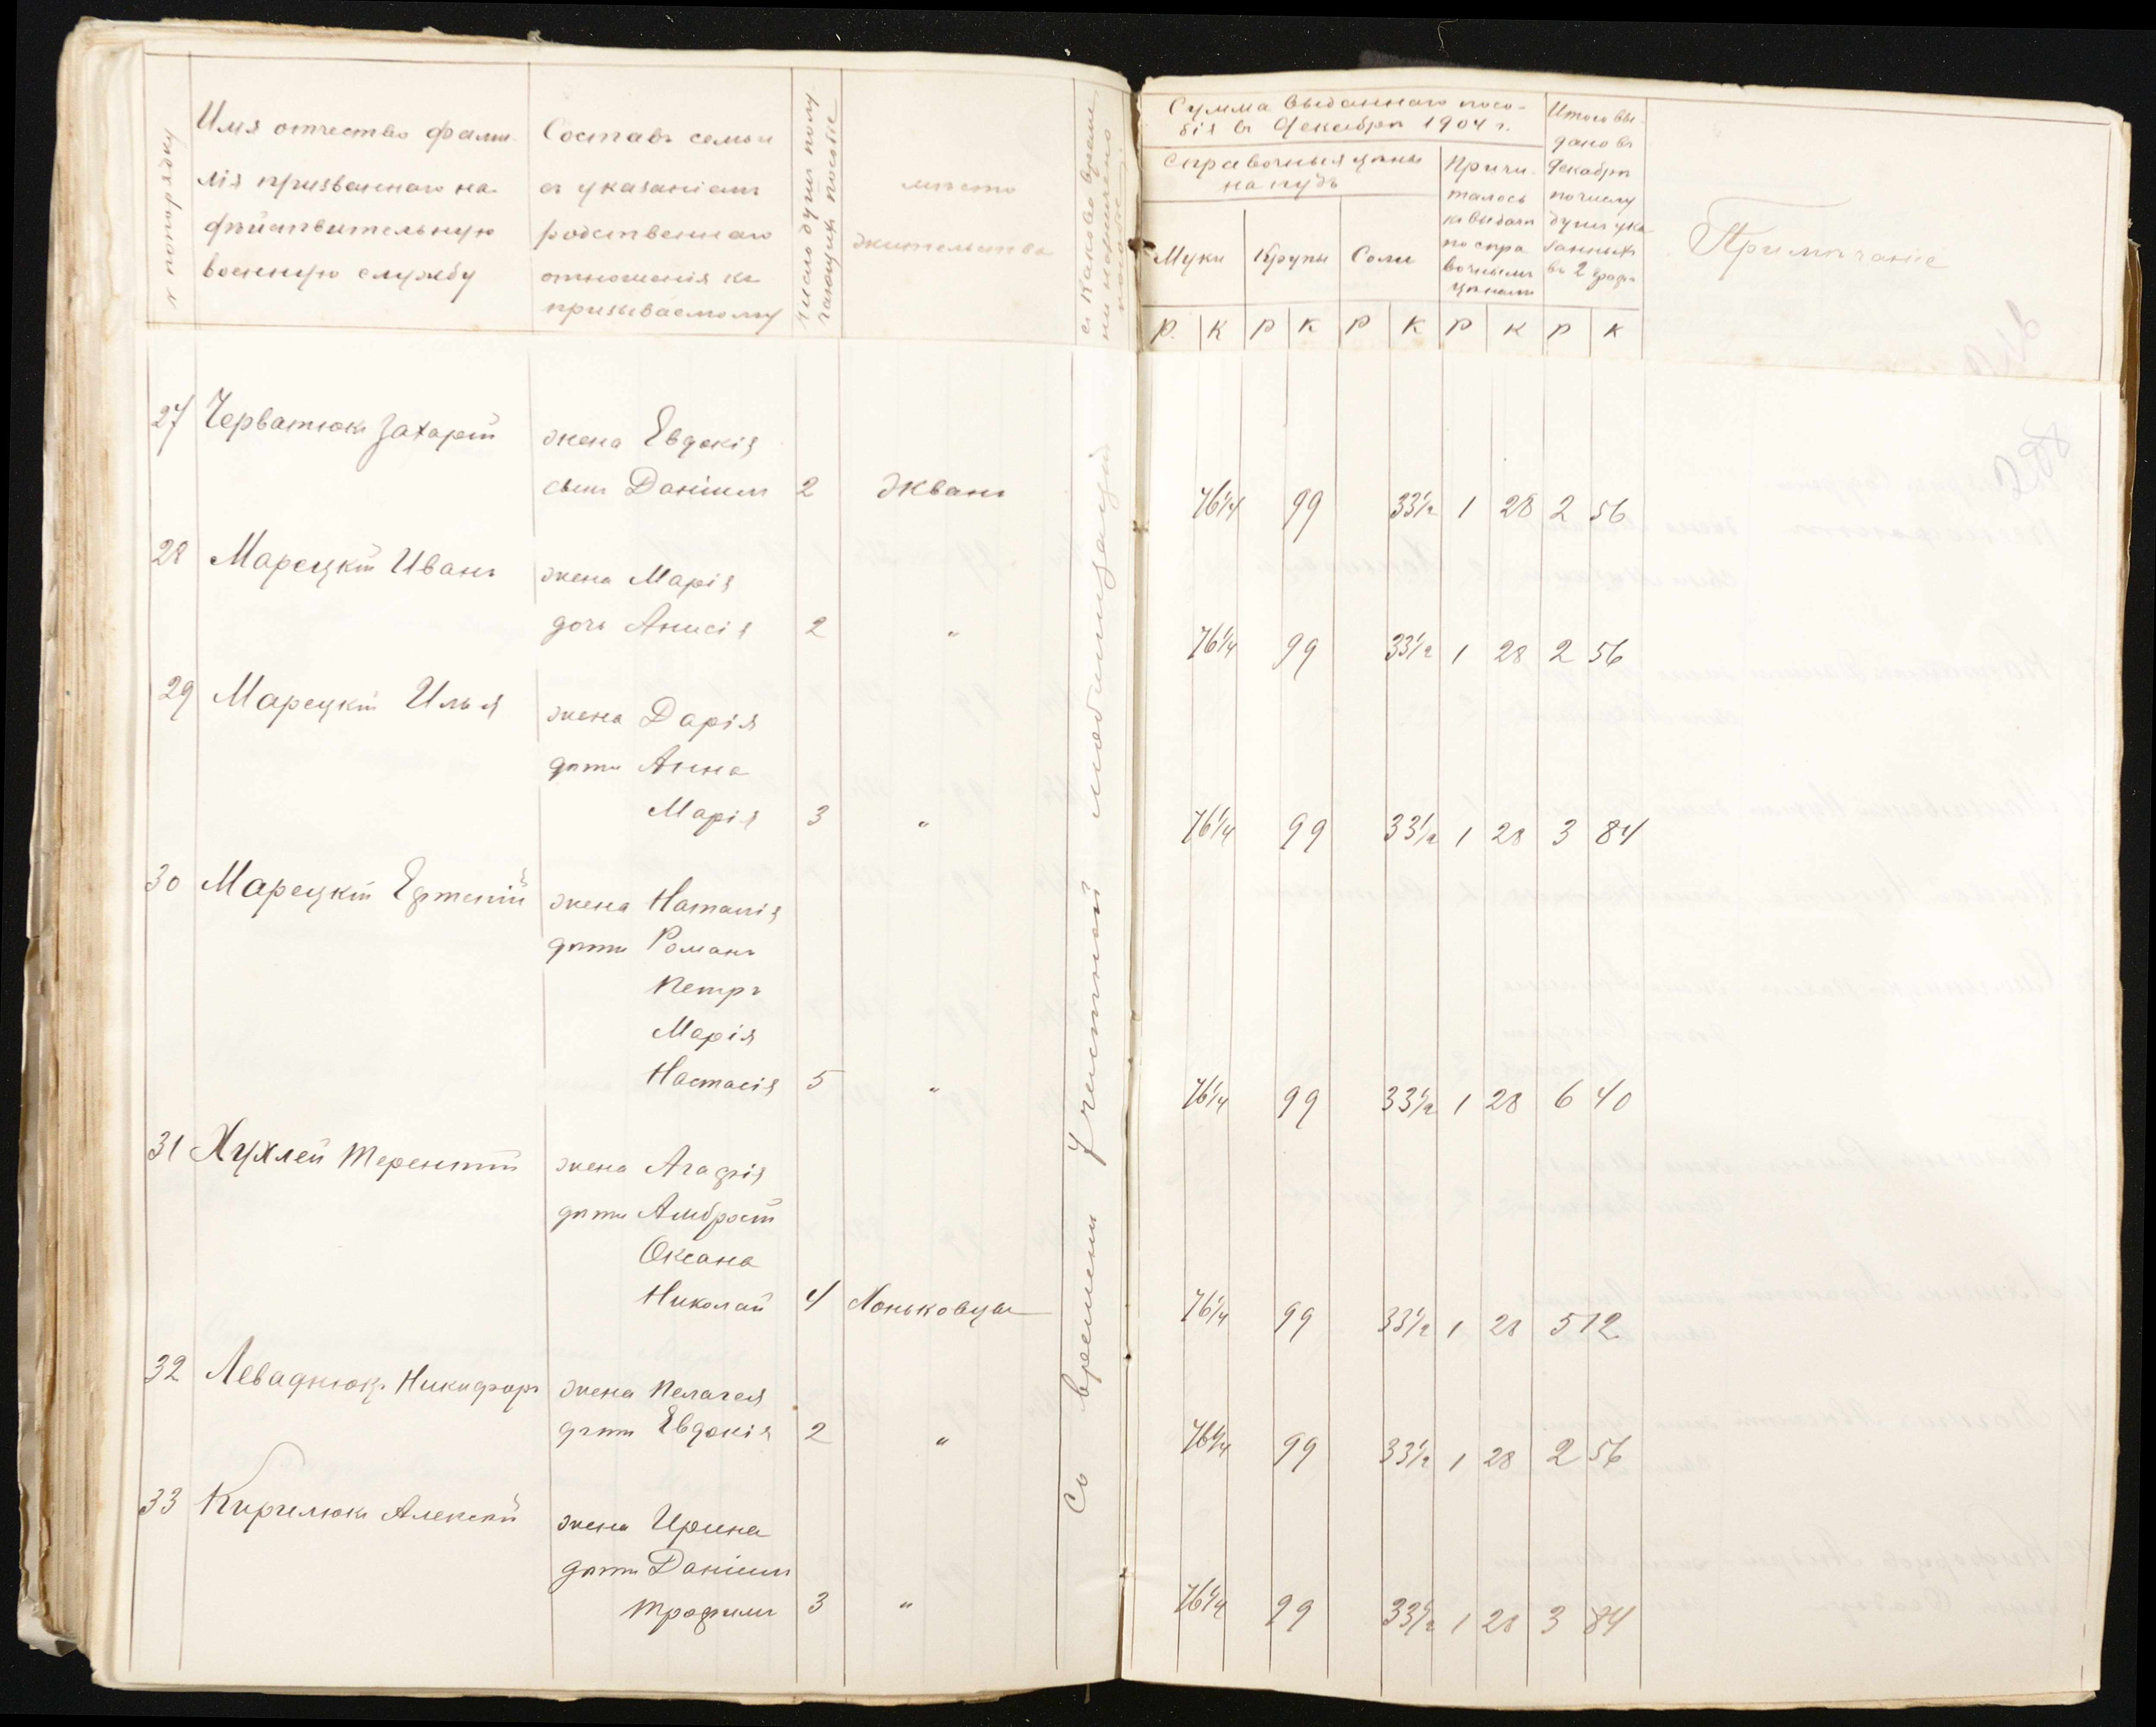 № порядку
Имя отчество фами-
лія призваннаго на
дѣйствительную
военную службу
Составъ семьи
съ указаніемъ
родственнаго
отношенія къ
призываемому
Число душъ полу
чающихъ пособіе
мѣсто
жительства
съ какого време
ни назначено
пособіе
Сумма выданнаго посо-
бія въ Декабрѣ 1904 г.
Справочныя цѣны
на пудъ
Муки
Крупы
Соли
Причи-
талось
къ выдачѣ
по спра
вочнымъ
цѣнамъ
Итого вы-
дано въ
Декабрѣ
по числу
душъ ука
занныхъ
въ 2 графѣ
Примѣчаніе
Р. К Р К Р К Р К Р К
Со времени учистной мобилизаціи
27 Черватюкъ Захарій жена Евдокія
сынъ Даніилъ 2 Жванъ 76¼ 99 33½ 1 28 2 56
28 Марецкій Иванъ жена Марія
дочь Анисія 2 " 76¼ 99 33½ 1 28 2 56
29 Марецкій Илья жена Дарія
дѣти Анна
Марія 3 " 76¼ 99 33½ 1 28 3 84
30 Марецкій Евтепій жена Наталія
дѣти Романъ
Петръ
Марія
Настасія 5 " 76¼ 99 33½ 1 28 6 40
31 Хухлей Терентій жена Агафія
дѣти Амбросій
Оксана
Николай 4 Лоньковцы 76¼ 99 33½ 1 28 5 12
32 Леваднюкъ Никифоръ жена Пелагея
дѣти Евдокія 2 " 76¼ 99 33½ 1 28 2 56
33 Кирилюкъ Алексѣй жена Ирина
дѣти Даніилъ
Трофимъ 3 " 76¼ 99 33½ 1 28 3 84